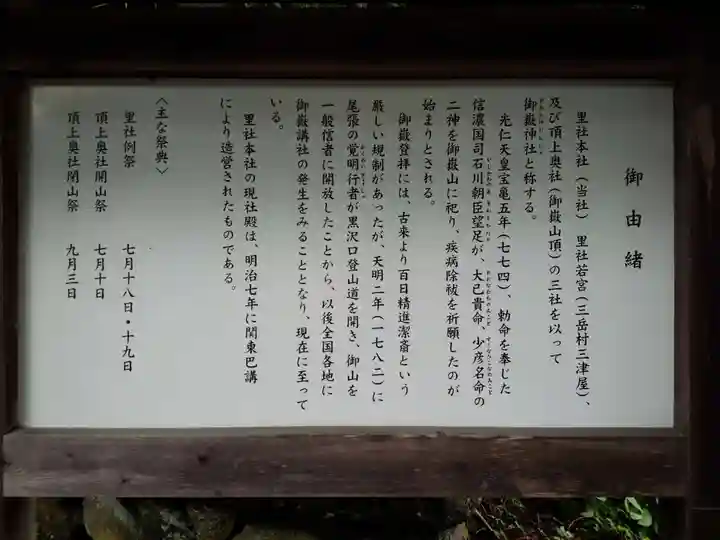 御由緒
里社本社（当社）　里社若宮（三岳村三津屋）、
及び頂上奥社（御嶽山頂）の三社を以って
御嶽神社と称する。
光仁天皇宝亀五年（七七四）、勅命を奉じた
信濃国司石川朝臣望足が、大己貴命、少彦名命の
二神を御嶽山に祀り、疾病除祓を祈願したのが
始まりとされる。
御嶽登拝には、古来より百日精進潔斎という
厳しい規制があったが、天明二年（一七八二）に
尾張の覚明行者が黒沢口登山道を開き、御山を
一般信者に開放したことから、以後全国各地に
御嶽講社の発生をみることとなり、現在に至って
いる。
里社本社の現社殿は、明治七年に関東巴講
により造営されたものである。
〈主な祭典〉
里社例祭　七月十八日・十九日
頂上奥社開山祭　七月十日
頂上奥社閉山祭　九月三日